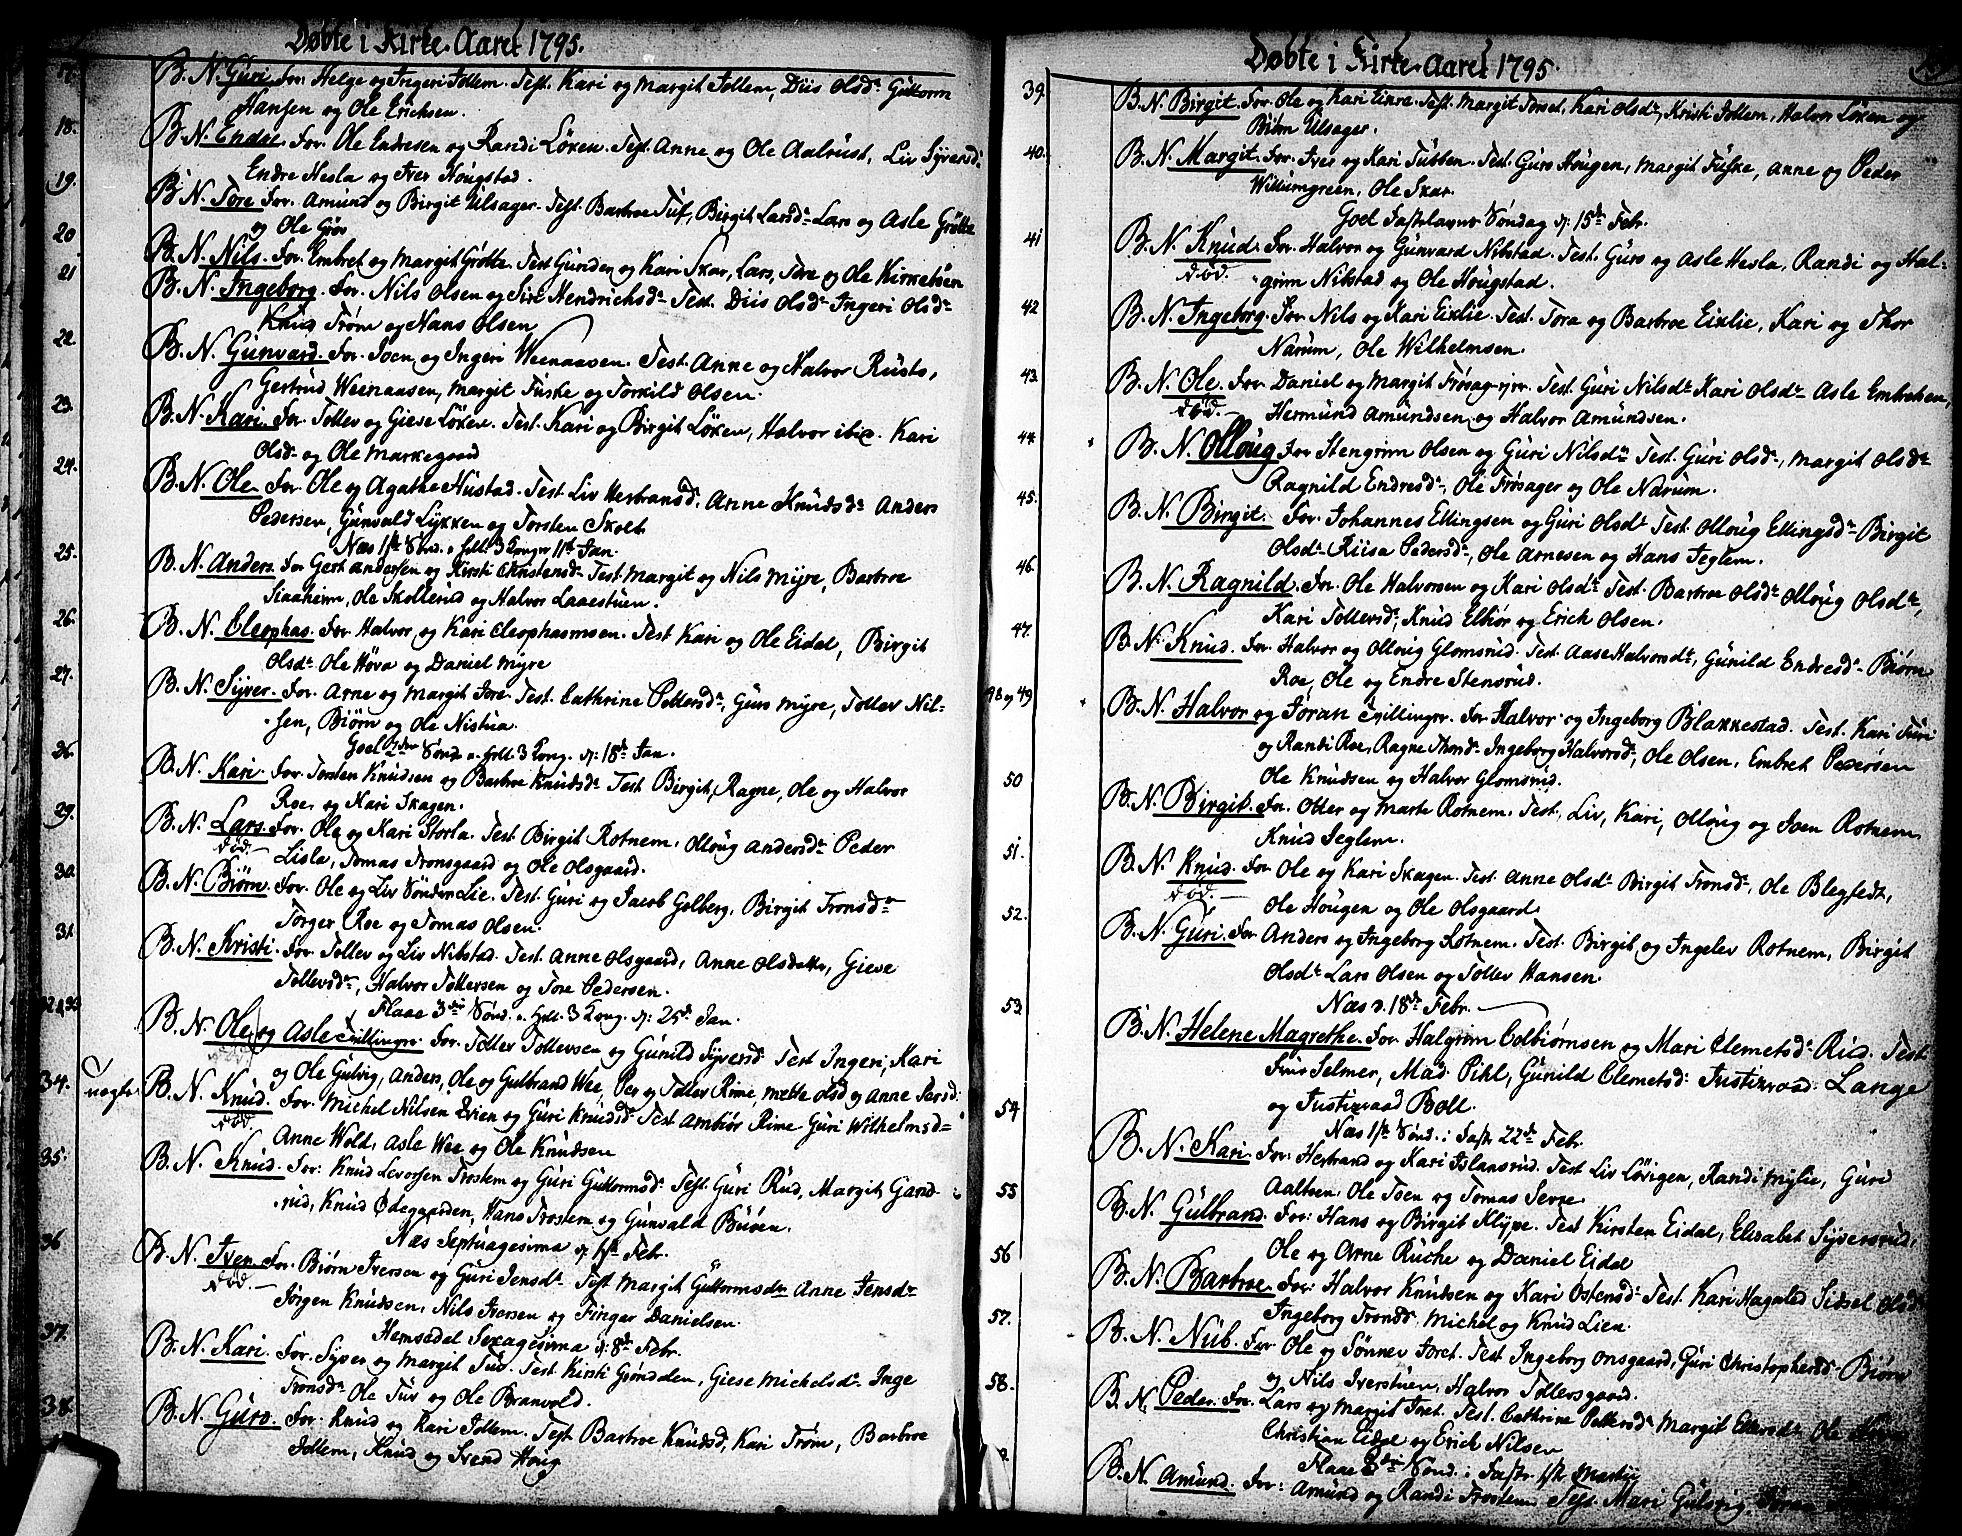 Døbte i Kirke. Aaret 1795.
17. B. N. Guri. For. Helge og Ingeri Jollem. Test. Kari og Margit Jollem, Diis Olsdr. Guttorm
Hansen og Ole Erichsen.
18. B. N. Endre. For. Ole Endresen og Randi Løken. Test. Anne og Ole Aalrust, Liv Syversdr.
Endre Hesla og Iver Hougstad.
19. B. N. Tore For. Amund og Birgit Ulsager. Test. Barbroe Tuf, Birgit Larsdr. Lars og Asle Grøtte
og Ole Grøv
20 B. N. Nils. For. Embret og Margit Grøtte. Test Gunder og Kari Skar, Lars, Tore og Ole Kirkebøen
21 B. N. Ingeborg. For. Nils Olsen og Siri Hendrichsdr. Test. Diis Olsdr. Ingeri Olsdr.
Knud Trøm og Hans Olsen
22. B. N. Gunvard. For. Joen og Ingeri Weenaasen. Test. Anne og Halvor Rusto,
Gertrud Weenaasen, Margit Fuske og Torkild Olsen.
23. B. N. Kari. For. Tollev og Giese Løken. Test. Kari og Birgit Løken, Halvor ibid. Kari
Olsdr. og Ole Markegaard
24. B. N. Ole. For. Ole og Agathe Hustad. Test. Liv Herbransdr. Anne Knudsdr. Anders
Pedersen, Gunvald Lykken og Torsten Skolt.
Næs 1ste Sønd. e. hell. 3 Konger 11te Jan.
25. B. N. Anders. For Gert Andersen og Kirsti Christensdr. Test. Margit og Nils Myre, Barbroe
Siaaheim, Ole Skollerud og Halvor Laaestuen.
26. B. N. Cleophas. For. Halvor og Kari Cleophasmoen. Test Kari og Ole Eidal, Birgit
Olsdr. Ole Høva og Daniel Myre
27. B. N. Syver. For. Arne og Margit Jore. Test. Cathrine Pettersdr., Guro Myre, Tollev Nil-
sen, Biørn og Ole Nistua.
Goel 2den Sønd. e. hell. 3 Kong. d: 18de Jan.
26. B. N. Kari. For. Torsten Knudsen og Barbroe Knudsdr. Test Birgit, Ragne, Ole og Halvor
Roe, og Kari Skagen.
29. B. N. Lars. For. Ole og Kari Storla. Test. Birgit Rotnem, Olloug Andersdr. Peder
død.
Lisla, Tomas Tronsgaard og Ole Olsgaard.
30. B. N. Biørn. For. Ole og Liv Sønder Lie. Test. Guri og Jacob Golberg, Birgit Tronsdr.
Torger Roe og Tomas Olsen.
31. B. N. Kristi. For. Tollev og Liv Nibstad. Test. Anne Olsgaard, Anne Olsdatter, Giese
Tollevsdr., Halvor Tollevsen og Tore Pedersen.
Flaae 3die Sønd. e. hell. 3 Kong. d: 25de Jan.
32 & 33 B. N. Ole og Asle Tvillinger. For. Tollev Tollevsen og Gunild Syversdr. Test Ingeri, Kari
og Ole Gulvig, Anders, Ole og Gulbrand Wee, Per og Tollev Rime, Mette Olsd og Anne Larsd:
34. uegte B. N. Knud. For. Michel Nilsen Evien og Guri Knudsdr. Test Ambiør Rime Guri Wilhelmsd=
død.
Anne Wold, Asle Wee og Ole Knudsen
35. B. N. Knud. For: Knud Levorsen Trostem og Guri Guttormsdr. Test. Guri Rud, Margit Gand-
rud, Knud Ødegaarden, Hans Trostem og Gunvald Buøen.
Næs Septuagesima d: 1ste Febr.
36 B. N. Iver. For. Biørn Iversen og Guri Jensdr. Test Margit Guttormsdr. Anne Jensdr.
død.
Jørgen Knudsen, Nils Iversen og Finger Danielsen.
Hemsedal Sexagesima d: 8de Febr.
37. B. N. Kari. For. Syver og Margit Tuv. Test Kirsti Grøndalen, Giese Michelsdr. Inge
Tronsdr. Ole Tuv og Ole Branvold.
38. B. N. Guro. For: Knud og Kari Jollem. Test Barbroe Knudsd, Kari Trøm, Barbroe
Jollem, Knud og Svend Houg
Døbte i Kirke. Aaret 1795.
39. B. N. Birgit. For. Ole og Kari Einre. Test. Margit Torset, Kari Olsdr., Kristi Jollem, Halvor Løken og
Biørn Ulsager.
40. B. N. Margit. For. Iver og Kari Tubben. Test. Guro Hougen, Margit Fuske, Anne og Peder
Willumgreen, Ole Skar.
Goel Fastelavns Søndag d: 15de Febr.
41 B. N. Knud. For. Halvor og Gunvard Nibstad. Test. Guro og Asle Hesla, Randi og Hal-
død.
grim Nibstad og Ole Hougstad.
42 B. N. Ingeborg. For. Nils og Kari Eiklie. Test. Tora og Barbroe Eiklie, Kari og Thor
Narum, Ole Wilhelmsen.
43. B. N. Ole. For. Daniel og Margit Frøsager. Test. Guri Nilsdr. Kari Olsdr. Asle Embretsen,
død.
Hermund Amundsen, og Halvor Amundsen.
44. B. N. Olloug For Stengrim Olsen og Guri Nilsdr. Test. Guri Olsdr., Margit Olsdr.
Ragnild Endresdr., Ole Frøsager og Ole Narum.
45. B. N. Birgit. For. Johannes Ellingsen og Guri Olsdr. Test. Olloug Ellingsdr. Birgit
Olsdr. Riisa Pedersdr., Ole Arnesen og Hans Jeglem.
46. B. N. Ragnild. For. Ole Halvorsen og Kari Olsdr. Test. Barbroe Olsdr. Olloug Olsdr.,
Kari Tollevsdr., Knud Elhor og Erich Olsen.
47. B. N. Knud. For. Halvor og Olloug Glomsrud. Test. Aase Halvorsdr., Gunild Endresdr. Biørn
Roe, Ole og Endre Stensrud.
48 og 49 B. N. Halvor og Joran Tvillinger. For Halvor og Ingeborg Blakkestad. Test. Kari Juri
og Randi Roe, Ragne Thordr. Ingeborg Halvorsdr., Ole Olsen, Embret Pedersen
Ole Knudsen og Halvor Glomsrud.
50 B. N. Birgit. For. Otter og Marte Rotnem. Test. Liv, Kari, Olloug og Joen Rotnem
Knud Jeglem.
51. B. N. Knud. For Ole og Kari Skagen. Test. Anne Olsdr. Birgit Tronsdr., Ole Blegfedt,
død.
Ole Hougen og Ole Olsgaard.
52. B. N. Guri. For Anders og Ingeborg Rotnem. Test. Birgit og Ingelev Rotnem, Birgit
Olsdr. Lars Olsen og Tollev Hansen.
Næs d. 18de Febr.
53. B. N. Helene Magrethe. For. Halgrim Colbiørnsen og Mari Clemetsdr. Rud. Test
Fru Selmer, Mad. Pihl, Gunild Clemetsdr: Justizraad Lange
og Justizraad Boll.
Næs 1ste Sønd. i Faste 22de Febr.
54 B. N. Kari. For: Herbrand og Kari Islansrud. Test Liv Løvigen, Randi Mylie, Guri
Aalton, Ole Toen og Tomas Serre.
55 B. N. Gulbrand. For: Hans og Birgit Klype. Test Kirsten Eidal, Elisabet Syversrud,
Ole og Arne Ruche og Daniel Eidal
56 B. N. Barbroe. For: Halvor Knudsen og Kari Ostensdr. Test. Kari Hagaled Sidsel Olsdr
Ingeborg Tronsdr. Michel og Knud Lien.
57. B. N. Nub. For Ole og Sønnev Joret. Test Ingeborg Onsgaard, Guri Christophersdr. Biørn
og Nils Iverstuen, Halvor Tollevsgaard.
58. B. N. Peder. For. Lars og Margit Joret. Test. Cathrine Pettersdr. Margit Ellevsdr. Ole
Christian Eidal og Erich Nilsen
Flaae 2den Sønd. i Faste 1ste Martii
B. N. Amund. For: Amund og Randi Trostem Test. Mari Gulsvig